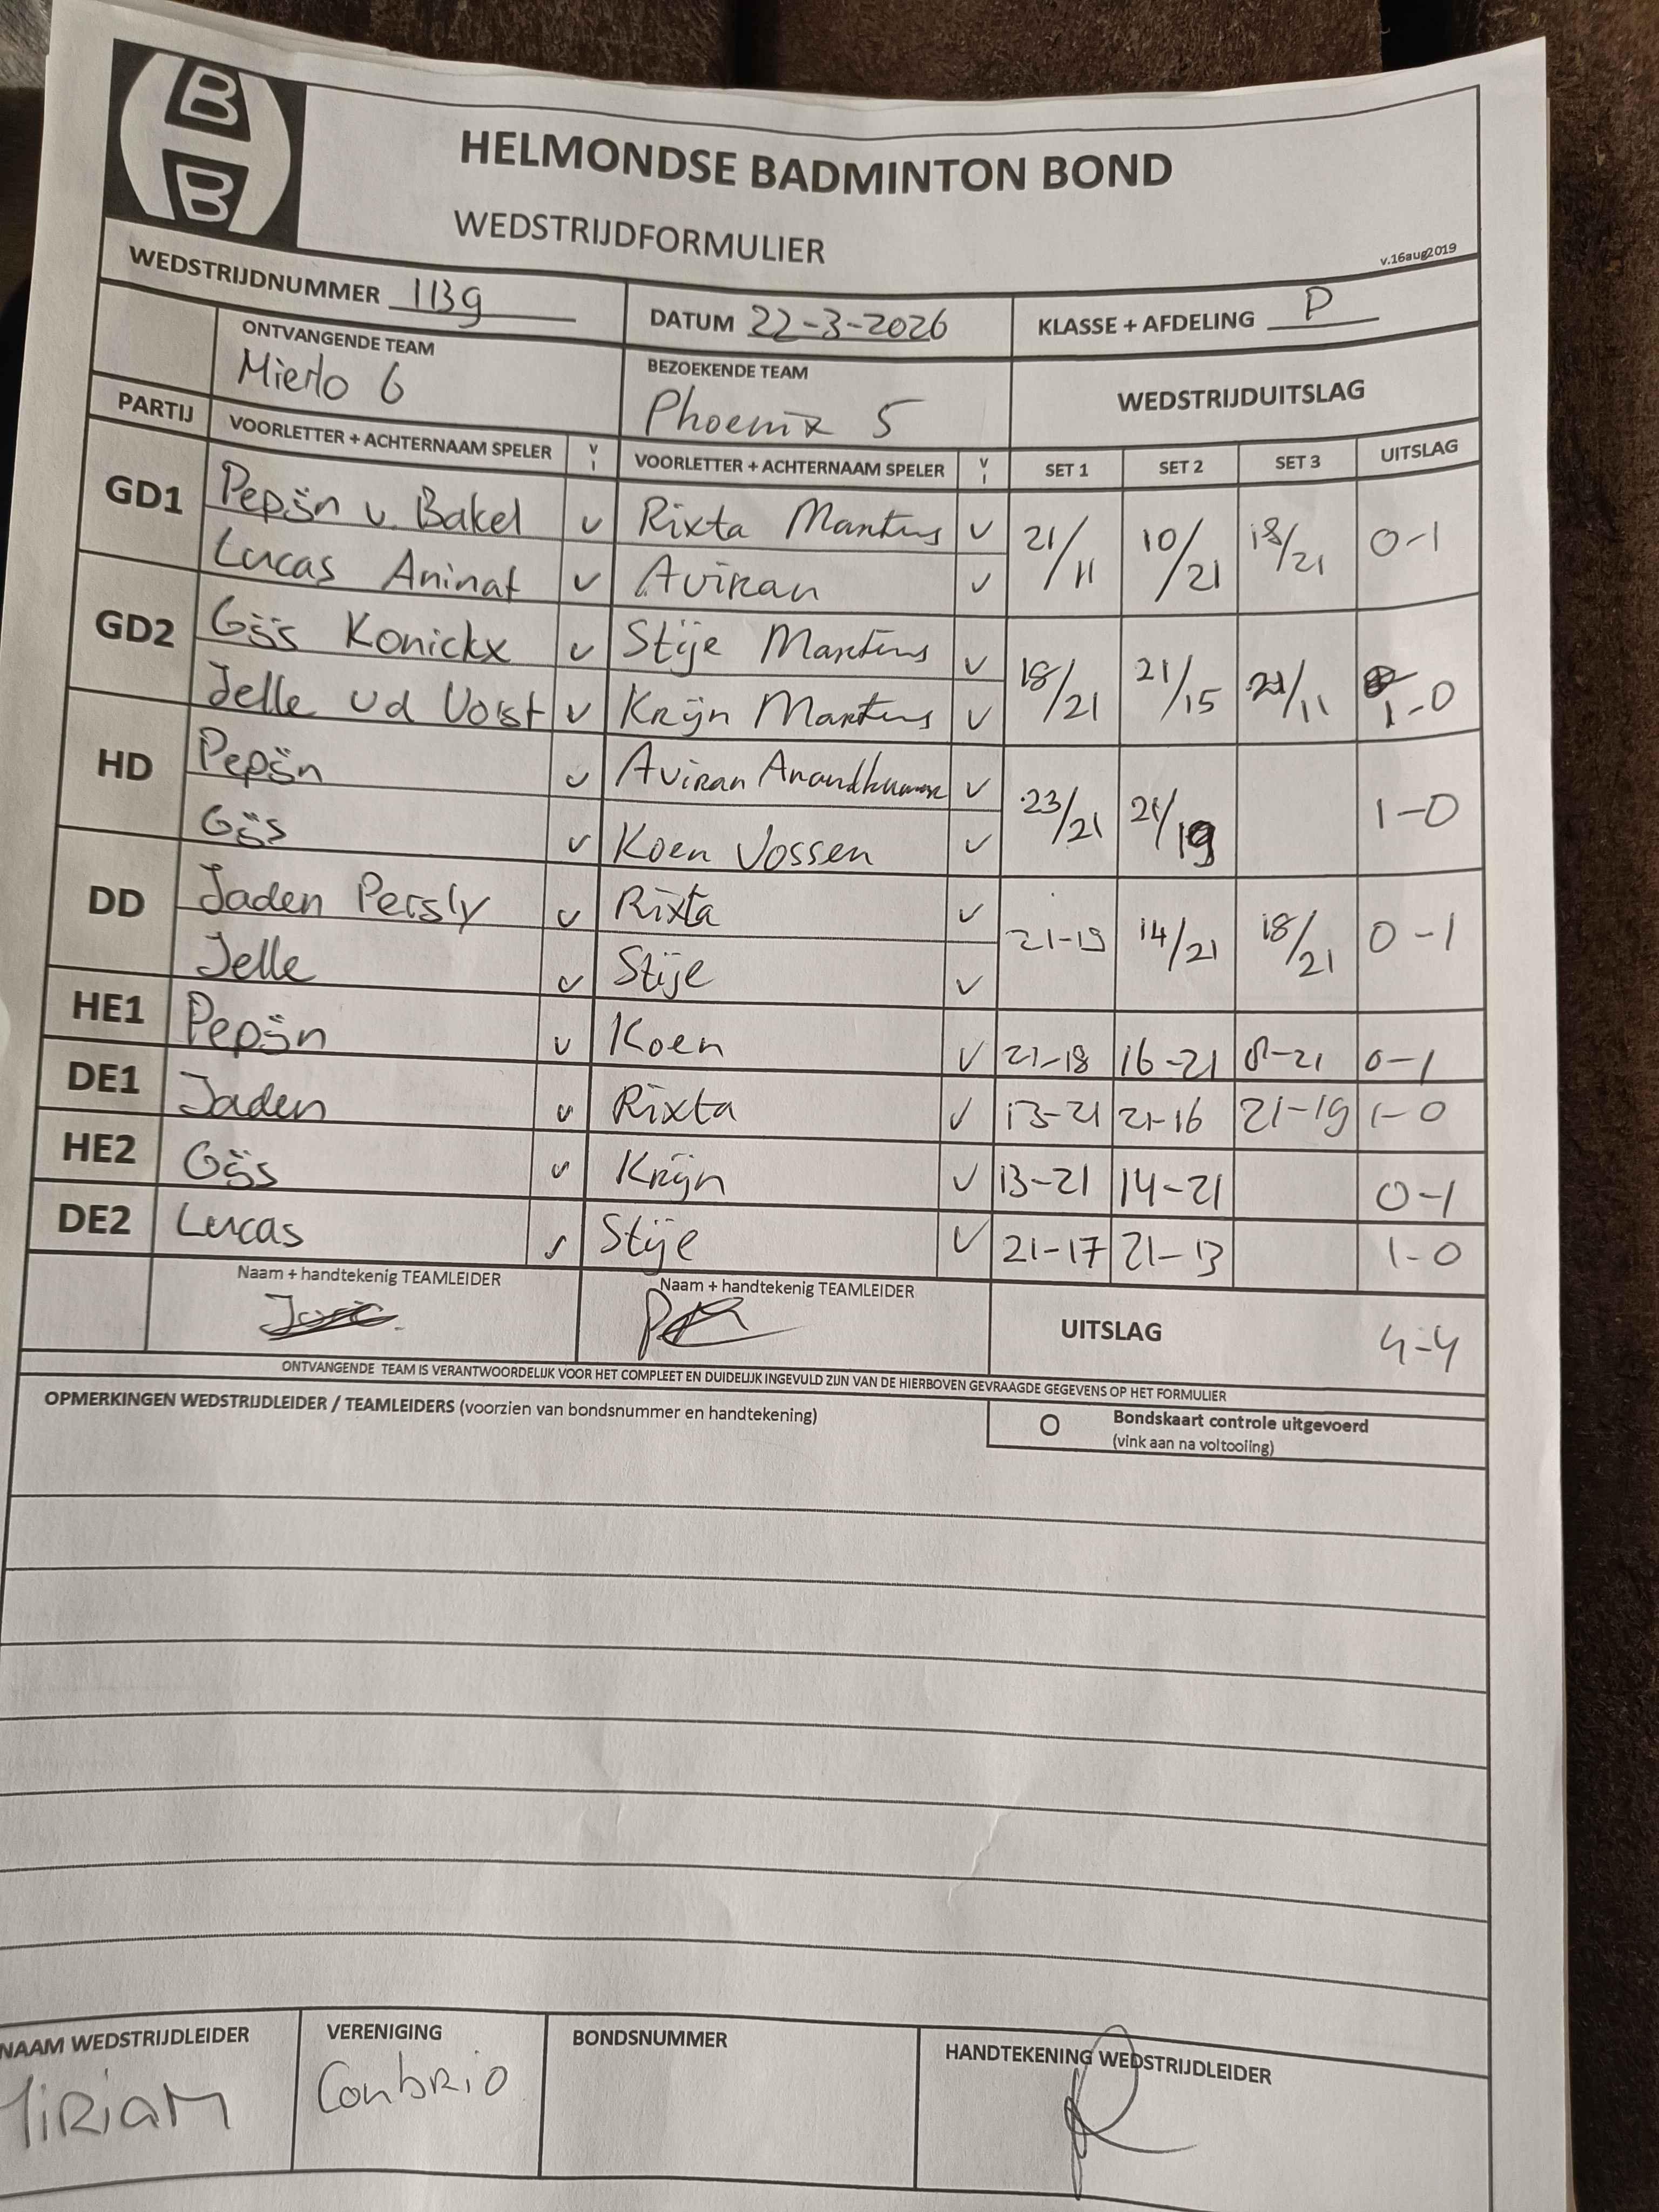 B
B
HELMONDSE BADMINTON BOND
WEDSTRIJDFORMULIER
v.16aug2019
WEDSTRIJDNUMMER 1139 DATUM 22-3-2026 KLASSE + AFDELING P
ONTVANGENDE TEAM BEZOEKENDE TEAM WEDSTRIJDUITSLAG
Mierlo 6 Phoenix 5
PARTIJ VOORLETTER + ACHTERNAAM SPELER V I VOORLETTER + ACHTERNAAM SPELER V I SET 1 SET 2 SET 3 UITSLAG
GD1 Pepijn v. Bakel v Rixta Martens v 21/11 10/21 18/21 0-1
Lucas Aninat v Aviran v
GD2 Gijs Konickx v Stije Martens v 18/21 21/15 21/11 1-0
Jelle vd Vorst v Krijn Martens v
HD Pepijn v Aviran v 23/21 21/19 1-0
Gijs v Koen Vossen v
DD Jaden Persly v Rixta v 21-19 14/21 18/21 0-1
Jelle v Stije v
HE1 Pepijn v Koen v 21-18 16-21 8-21 0-1
DE1 Jaden v Rixta v 13-21 21-16 21-19 1-0
HE2 Gijs v Krijn v 13-21 14-21 0-1
DE2 Lucas v Stije v 21-17 21-13 1-0
Naam + handtekenig TEAMLEIDER Naam + handtekenig TEAMLEIDER UITSLAG 4-4
ONTVANGENDE TEAM IS VERANTWOORDELIJK VOOR HET COMPLEET EN DUIDELIJK INGEVULD ZIJN VAN DE HIERBOVEN GEVRAAGDE GEGEVENS OP HET FORMULIER
OPMERKINGEN WEDSTRIJDLEIDER / TEAMLEIDERS (voorzien van bondsnummer en handtekening) O Bondskaart controle uitgevoerd
(vink aan na voltooiing)
NAAM WEDSTRIJDLEIDER VERENIGING BONDSNUMMER HANDTEKENING WEDSTRIJDLEIDER
Miriam Conbrio